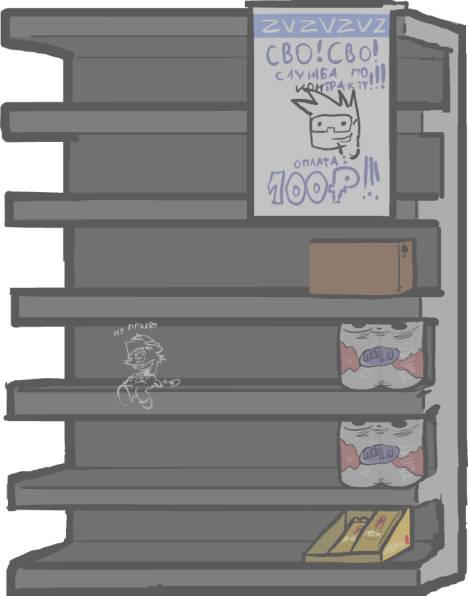 ZVZVZVZ
СВО!СВО!
СЛУЖБА ПО
КОНТРАКТУ!!!
ОПЛАТА:
100₽!!!
ну привет